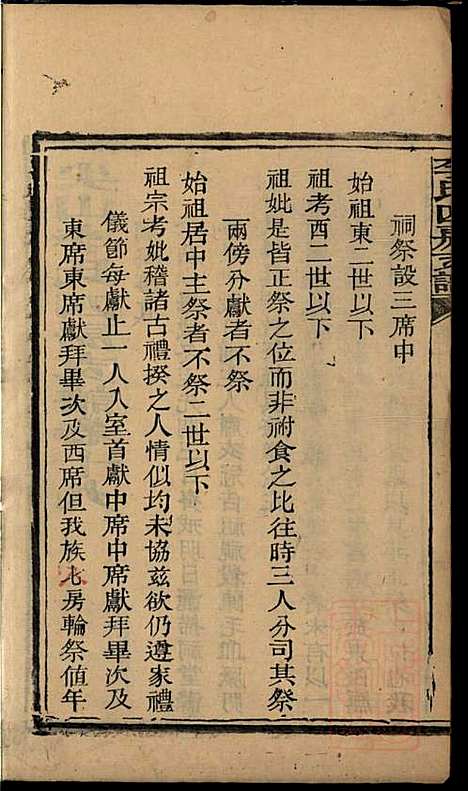 李氏四房支譜
祠祭設三席中
始祖東二世以下
祖考西二世以下
祖妣是皆正祭之位而非祔食之比往時三人分司其祭
兩傍分獻者不祭
始祖居中主祭者不祭二世以下
祖宗考妣稽諸古禮揆之人情似均未協茲欲仍遵家禮
儀節每獻止一人入室首獻中席中席獻拜畢次及
東席東席獻拜畢次及西席但我族七房輪祭值年